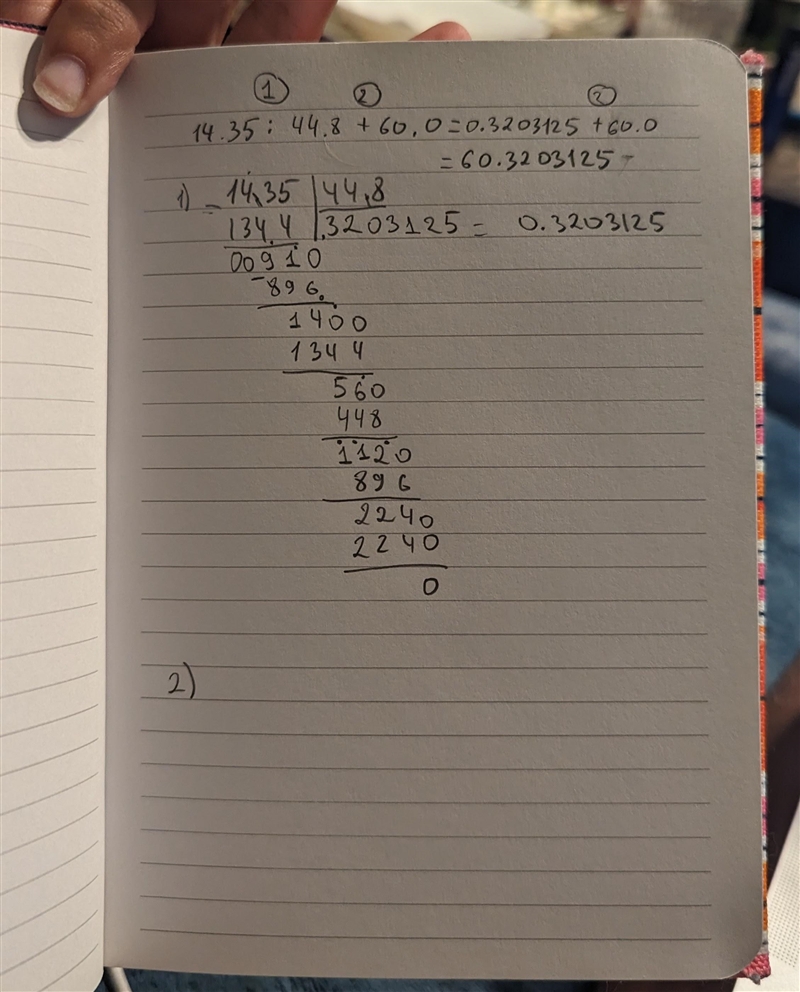 ① ② ②
14.35 : 44.8 + 60,0 = 0.3203125 + 60.0
= 60.3203125
1) - 14,35 | 44,8
134.4 | .3203125 = 0.3203125
00910
- 896
1400
1344
560
448
1120
896
2240
2240
0
2)